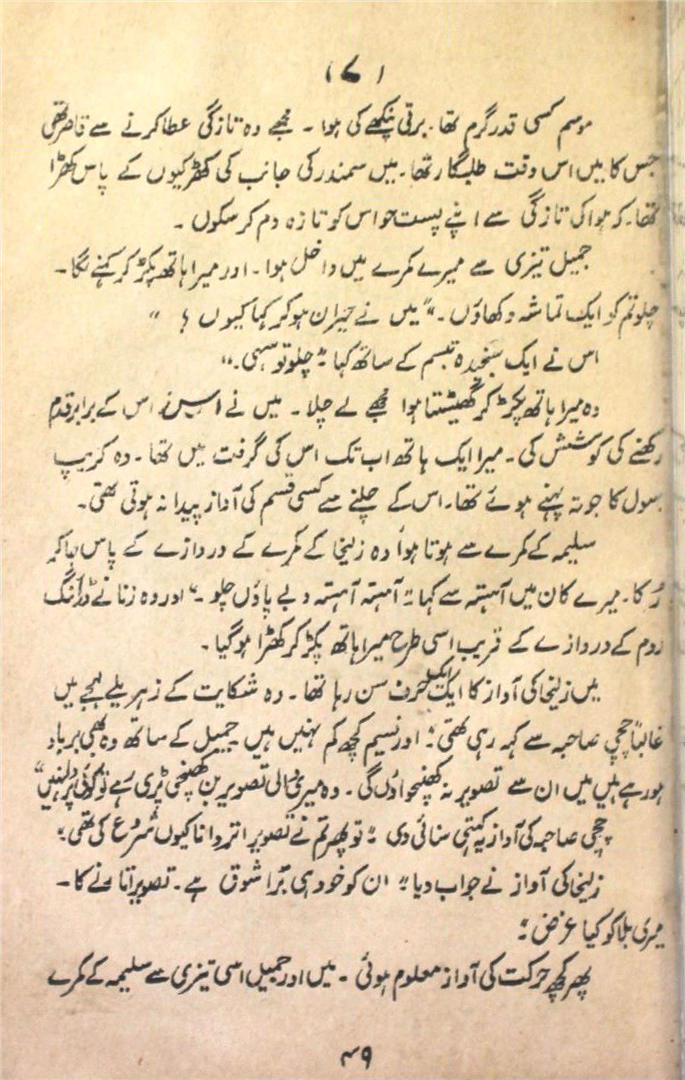 (۷)
موسم کسی قدر گرم تھا۔ برقی پنکھے کی ہوا۔ مجھے وہ تازگی عطا کرنے سے قاصر تھی
جس کا میں اس وقت طلبگار تھا۔ میں سمندر کی جانب کی کھڑکیوں کے پاس کھڑا
تھا۔ کہ ہوا کی تازگی سے اپنے پست حواس کو تازہ دم کر سکوں۔
جمیل تیزی سے میرے کمرے میں داخل ہوا۔ اور میرا ہاتھ پکڑ کر کہنے لگا۔
چلو تم کو ایک تماشہ دکھاؤں۔" میں نے حیران ہو کر کہا کیوں؟"
اس نے ایک سنجیدہ تبسم کے ساتھ کہا "چلو تو سہی۔"
وہ میرا ہاتھ پکڑ کر گھسیٹتا ہوا مجھے لے چلا۔ میں نے اس کے برابر قدم
رکھنے کی کوشش کی۔ میرا ایک ہاتھ اب تک اس کی گرفت میں تھا۔ وہ کریپ
سول کا جوتہ پہنے ہوئے تھا۔ اس کے چلنے سے کسی قسم کی آواز پیدا نہ ہوتی تھی۔
سلیمہ کے کمرے سے ہوتا ہوا وہ زلیخا کے کمرے کے دروازے کے پاس جا کر
رُکا۔ میرے کان میں آہستہ سے کہا "آہستہ آہستہ دبے پاؤں چلو۔" اور وہ زنانے ڈرائنگ
روم کے دروازے کے قریب اسی طرح میرا ہاتھ پکڑ کر کھڑا ہو گیا۔
میں زلیخا کی آواز کا ایک ایک حرف سن رہا تھا۔ وہ شکایت کے زہریلے لہجے میں
غالباً چچی صاحبہ سے کہہ رہی تھی "اور نسیم کچھ کم نہیں ہیں جمیل کے ساتھ وہ بھی برباد
ہو رہے ہیں میں ان سے تصویر نہ کھنچواؤں گی۔ وہ میری والی تصویر بن کھنچی پڑی رہے تو کوئی پر نہیں"
چچی صاحبہ کی آواز یہ کہتی سنائی دی "تو پھر تم نے تصویر اتروانا کیوں شروع کی تھی"
زلیخا کی آواز نے جواب دیا "ان کو خود ہی بڑا شوق ہے۔ تصویر اتارنے کا۔
میری بلا کو کیا غرض"
پھر کچھ حرکت کی آواز معلوم ہوئی۔ میں اور جمیل اسی تیزی سے سلیمہ کے کمرے
۴۹